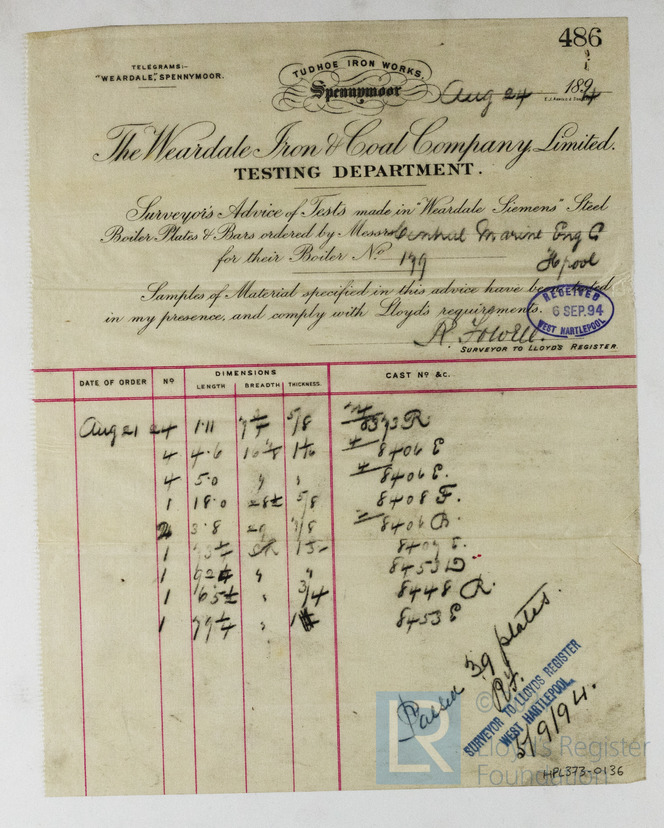 486
TELEGRAMS:-
"WEARDALE," SPENNYMOOR.
TUDHOE IRON WORKS,
Spennymoor Aug 24 1894
The Weardale Iron & Coal Company, Limited.
TESTING DEPARTMENT.
Surveyor's Advice of Tests made in "Weardale Siemens" Steel
Boiler Plates & Bars ordered by Messrs Central Marine Eng Co
for their Boiler No 199 Hpool
Samples of Material specified in this advice have been tested
in my presence, and comply with Lloyd's requirements.
RECEIVED
6 SEP. 94
WEST HARTLEPOOL
SURVEYOR TO LLOYD'S REGISTER.
DATE OF ORDER No DIMENSIONS CAST No &c.
LENGTH BREADTH THICKNESS.
Aug 21 24 1·11 5/8 8393 R
4 4·6 8406 E
4 5·0 " " 8406 E.
1 18·0 5/8 8408 F.
3·8 29 8406 B
1
1 " " 8453 D
1 " 3/4 8448 R.
1 " 8453 E
Passed 39 plates.
SURVEYOR TO LLOYDS REGISTER
WEST HARTLEPOOL.
5/9/94.
LR
© Lloyd's Register
Foundation
HPL373-0136